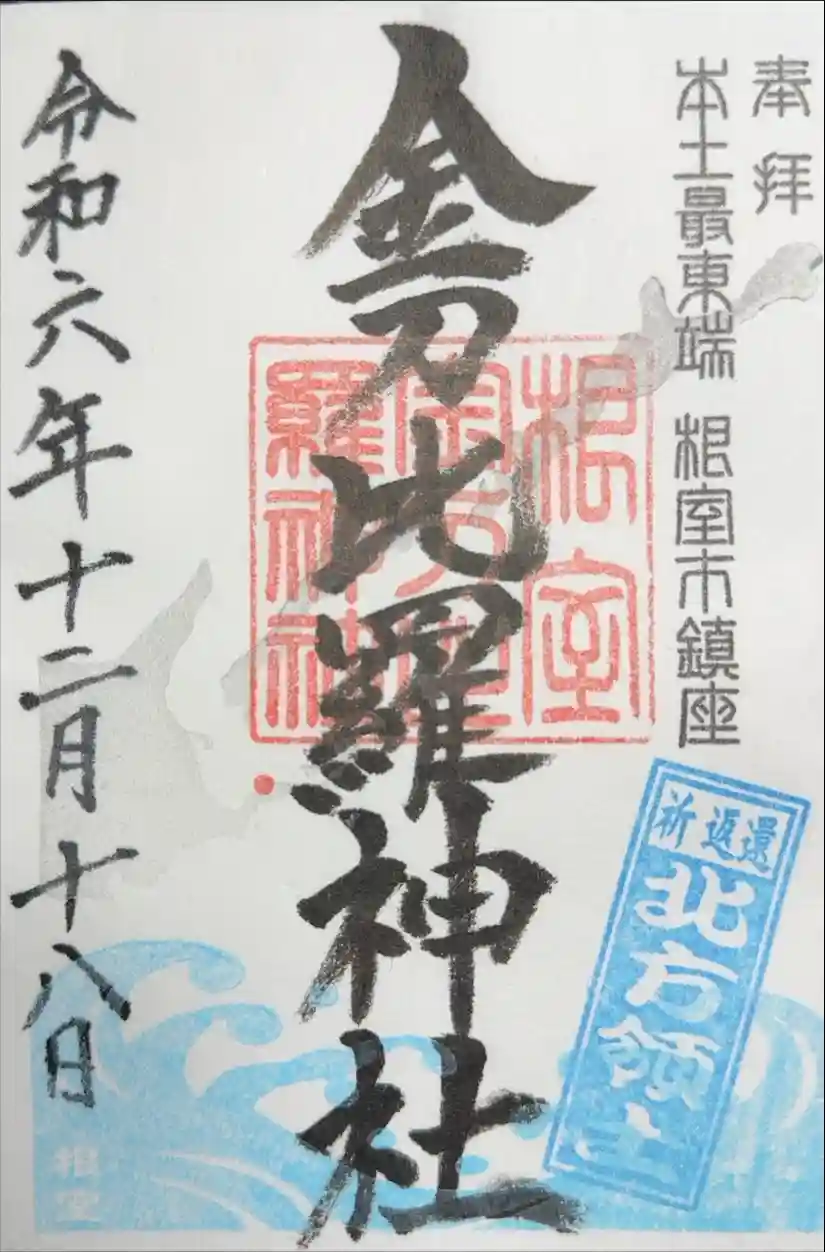 奉拝
本土最東端 根室市鎮座
金刀比羅神社
根室
金刀比
羅神社
令和六年十二月十八日
祈 返還
北方領土
根室